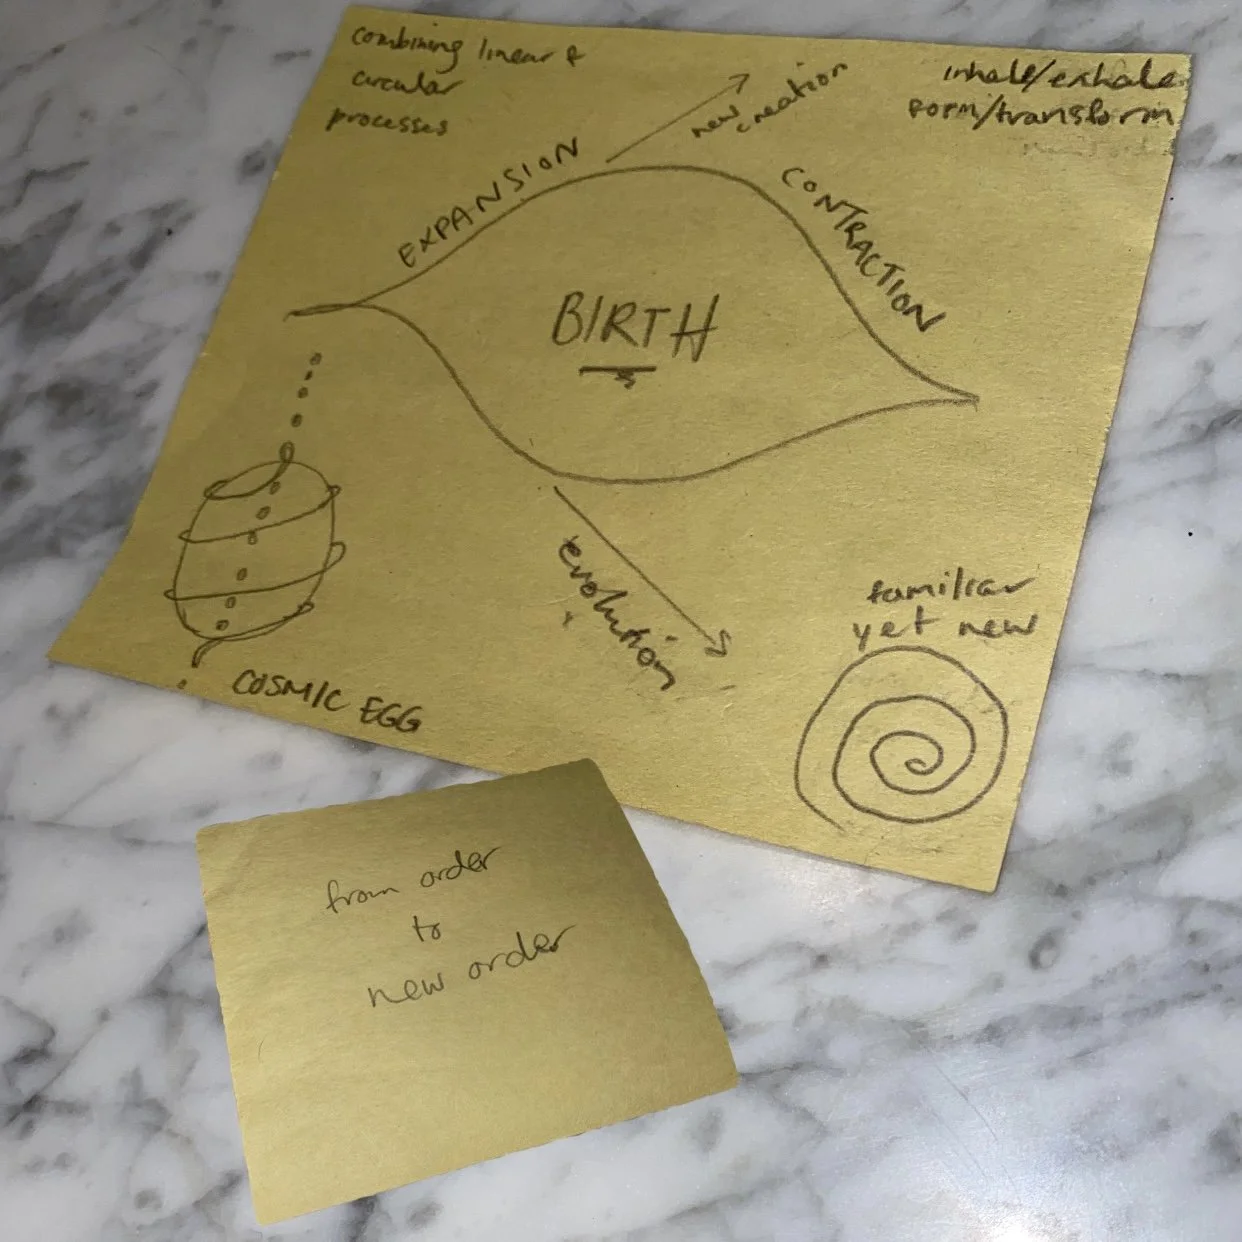 combining linear &
circular
processes
inhale/exhale
form/transform
new creation
EXPANSION
CONTRACTION
BIRTH
evolution
familiar
yet new
COSMIC EGG
from order
to
new order